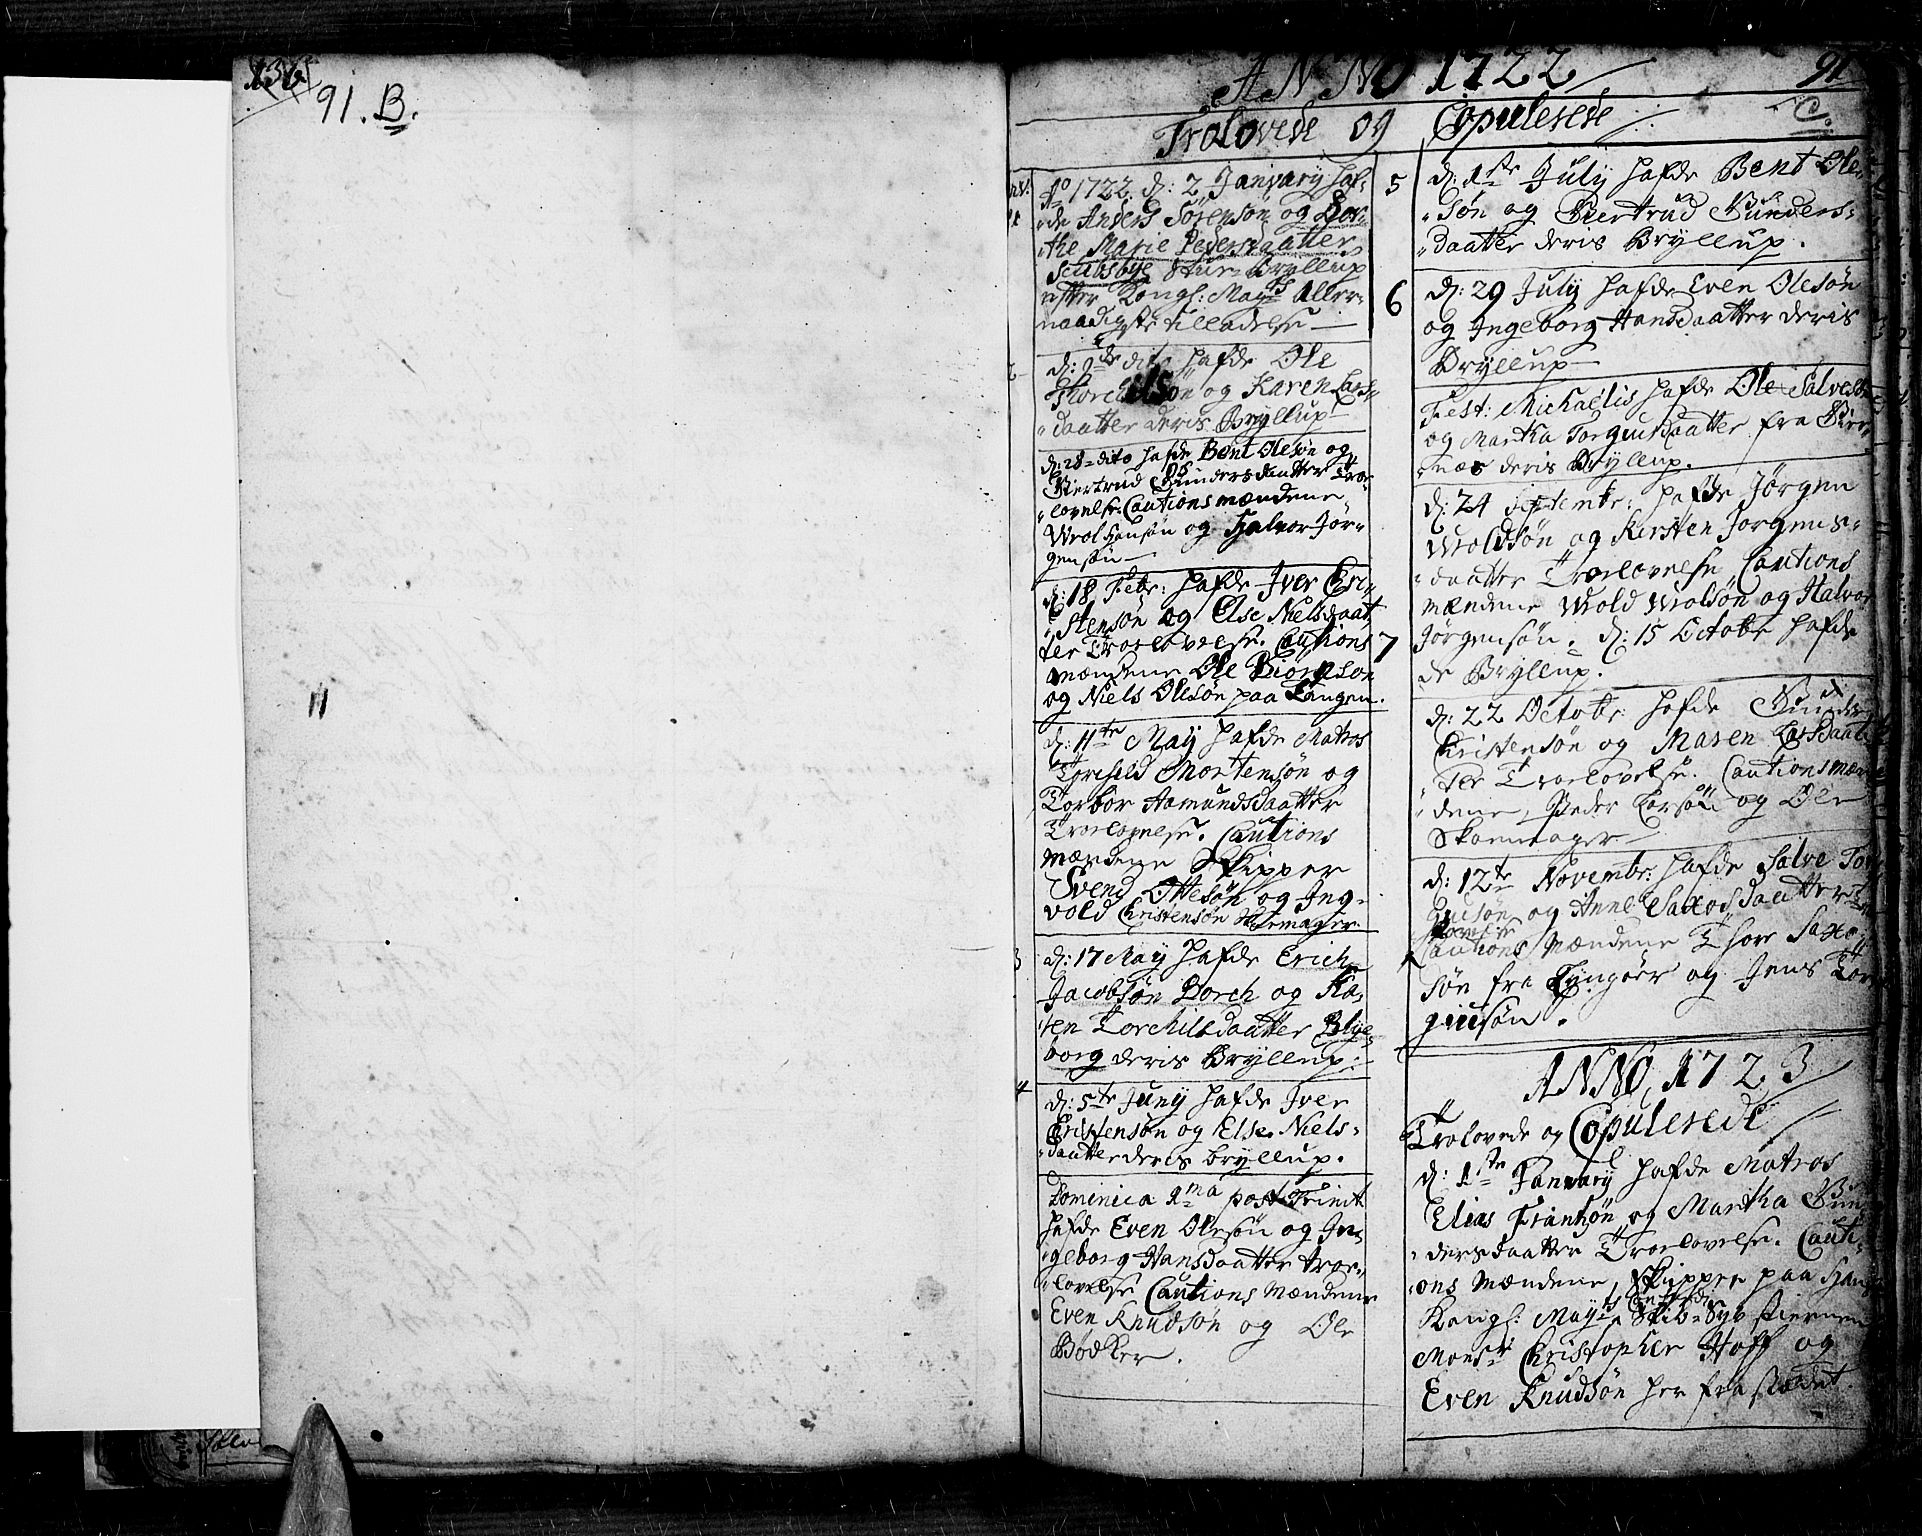 136
91. B.
11
ANNO 1722
91
C.
Trolovede og Copulerede
Ao 1722 d: 2 January haf-
de Anders Sörensön og Dor-
the Marie Pedersdaatter
Bryllup
efter Kongl: Mayts Aller-
naadigste tilladelse
2
d: dito hafde Ole
Thorchilsön og Karen Lars-
daatter deris Bryllup
d: 28 dito hafde Bent Olesön og
Giertrud Gundersdaatter Tro-
lovelse. Cautionsmændene
Wrol Hansön og Halvor Jör-
gensön
d: 18 Febr: hafde Iver Cri-
stensön og Else Nielsdaat
ter Troelovelse. Cautions
mændene Ole Biörnson
og Niels Olesön paa Tangen.
d: 11te May hafde Matros
Mortensön og
Torbor Aamundsdaatter
Troelovelse. Cautions
mændene Skipper
Svend Ottesön og Ing-
vold Christensön
3
d: 17 May hafde Erich
Jacobsön Borch og Ka-
ren Torchilsdaatter Blye
borg deris Bryllup:
4
d: 5te Juny hafde Iver
Cristensön og Else Niels-
daatter deris bryllup.
Dominica 1ma post Trinit
hafde Even Olesön og In-
geborg Hansdaatter troe-
lovelse Cautions Mændene
Even Knudsön og Ole
Bödker.
5
d: 1te July hafde Bent Ole-
sön og Giertrud Gunders-
daatter deris Bryllup.
6
d: 29 July hafde Even Olesön
og Ingeborg Hansdaatter deris
Bryllup
Fest: Michaëlis hafde Ole
og Martha Torgiusdaatter fra
deris Bryllup.
7
d: 24 Septembr: hafde Jörgen
Wroldsön og Kirsten Jorgens-
daatter Troelovelse Cautions
mændene Wrold Wrolsön og Halvor
Jörgensön. d: 15 Octobr hafde
de Bryllup.
d: 22 Octobr hafde Gunder
Christensön og Maren Larsdaat
ter Troelovelse. Cautionsmæn
dene, Peder Larsön og Ole
Skoemager
d: 12te Novembr: hafde Salve Tor
giusön og Anne Saxosdaatter Troe
lovelse
Cautions Mændene Thore Saxo-
sön fra Tyngöer og Jens Tor
giusön.
ANNO 1723
Trolovede og Copulerede
d: 1te January hafde Matros
Elias Frantsön og Martha Gun
dersdaatter Troelovelse. Cauti-
ons Mændene, Skipper paa Hans
Kongl: Mayts Skib Syv Stierner
Monsr Christopher Hoff og
Even Knudsön her fra stædet.